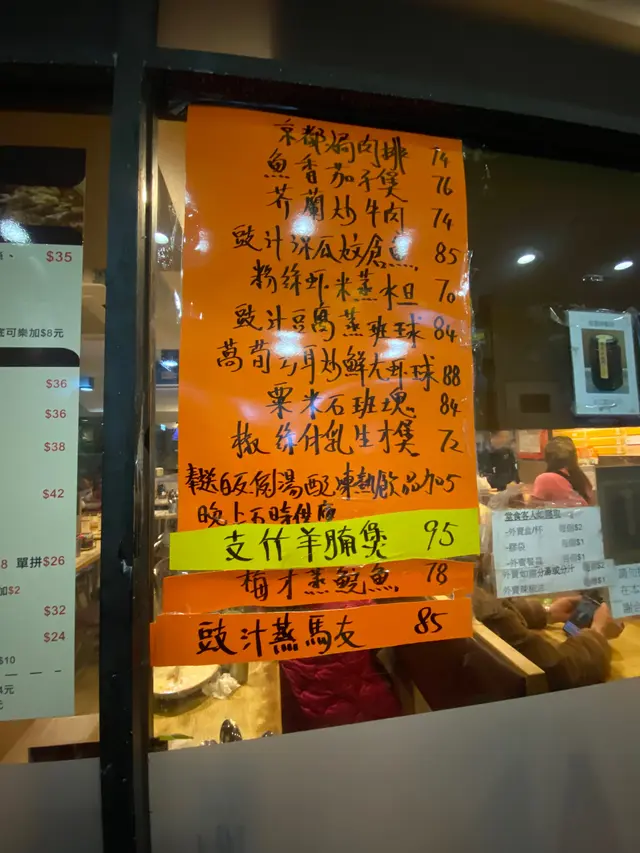 $35
可樂加$8元
$36
$36
$38
$42
單拼$26
$32
$24
$10
京都焗肉排 74
魚香茄子煲 76
芥蘭炒牛肉 74
豉汁涼瓜炆倉魚 85
粉絲虾米蒸水旦 70
豉汁豆腐蒸班球 84
萵筍云耳炒鮮大虾球 88
粟米石班塊 84
椒絲付乳生才煲 72
奉送白反例湯配凍熱飲品加5
晚上五時供應
支竹羊腩煲 95
梅才蒸鯇魚 78
豉汁蒸馬友 85
堂食客人如需取
-外賣盒/杯 每個$2
-膠袋 每個$1
-外賣餐具 每個$1